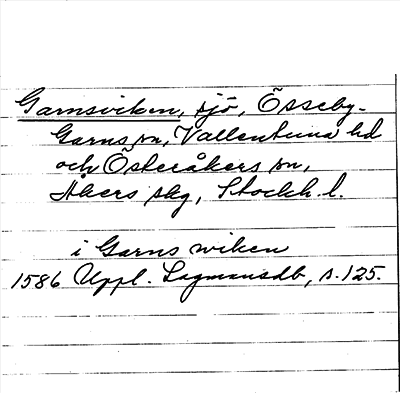 Garnsviken, sjö, Össeby-
Garns sn, Vallentuna hd
och Österåkers sn,
Åkers skg, Stockh. l.
i Garns wiken
1586 Uppl. Lagmansdb, s. 125.